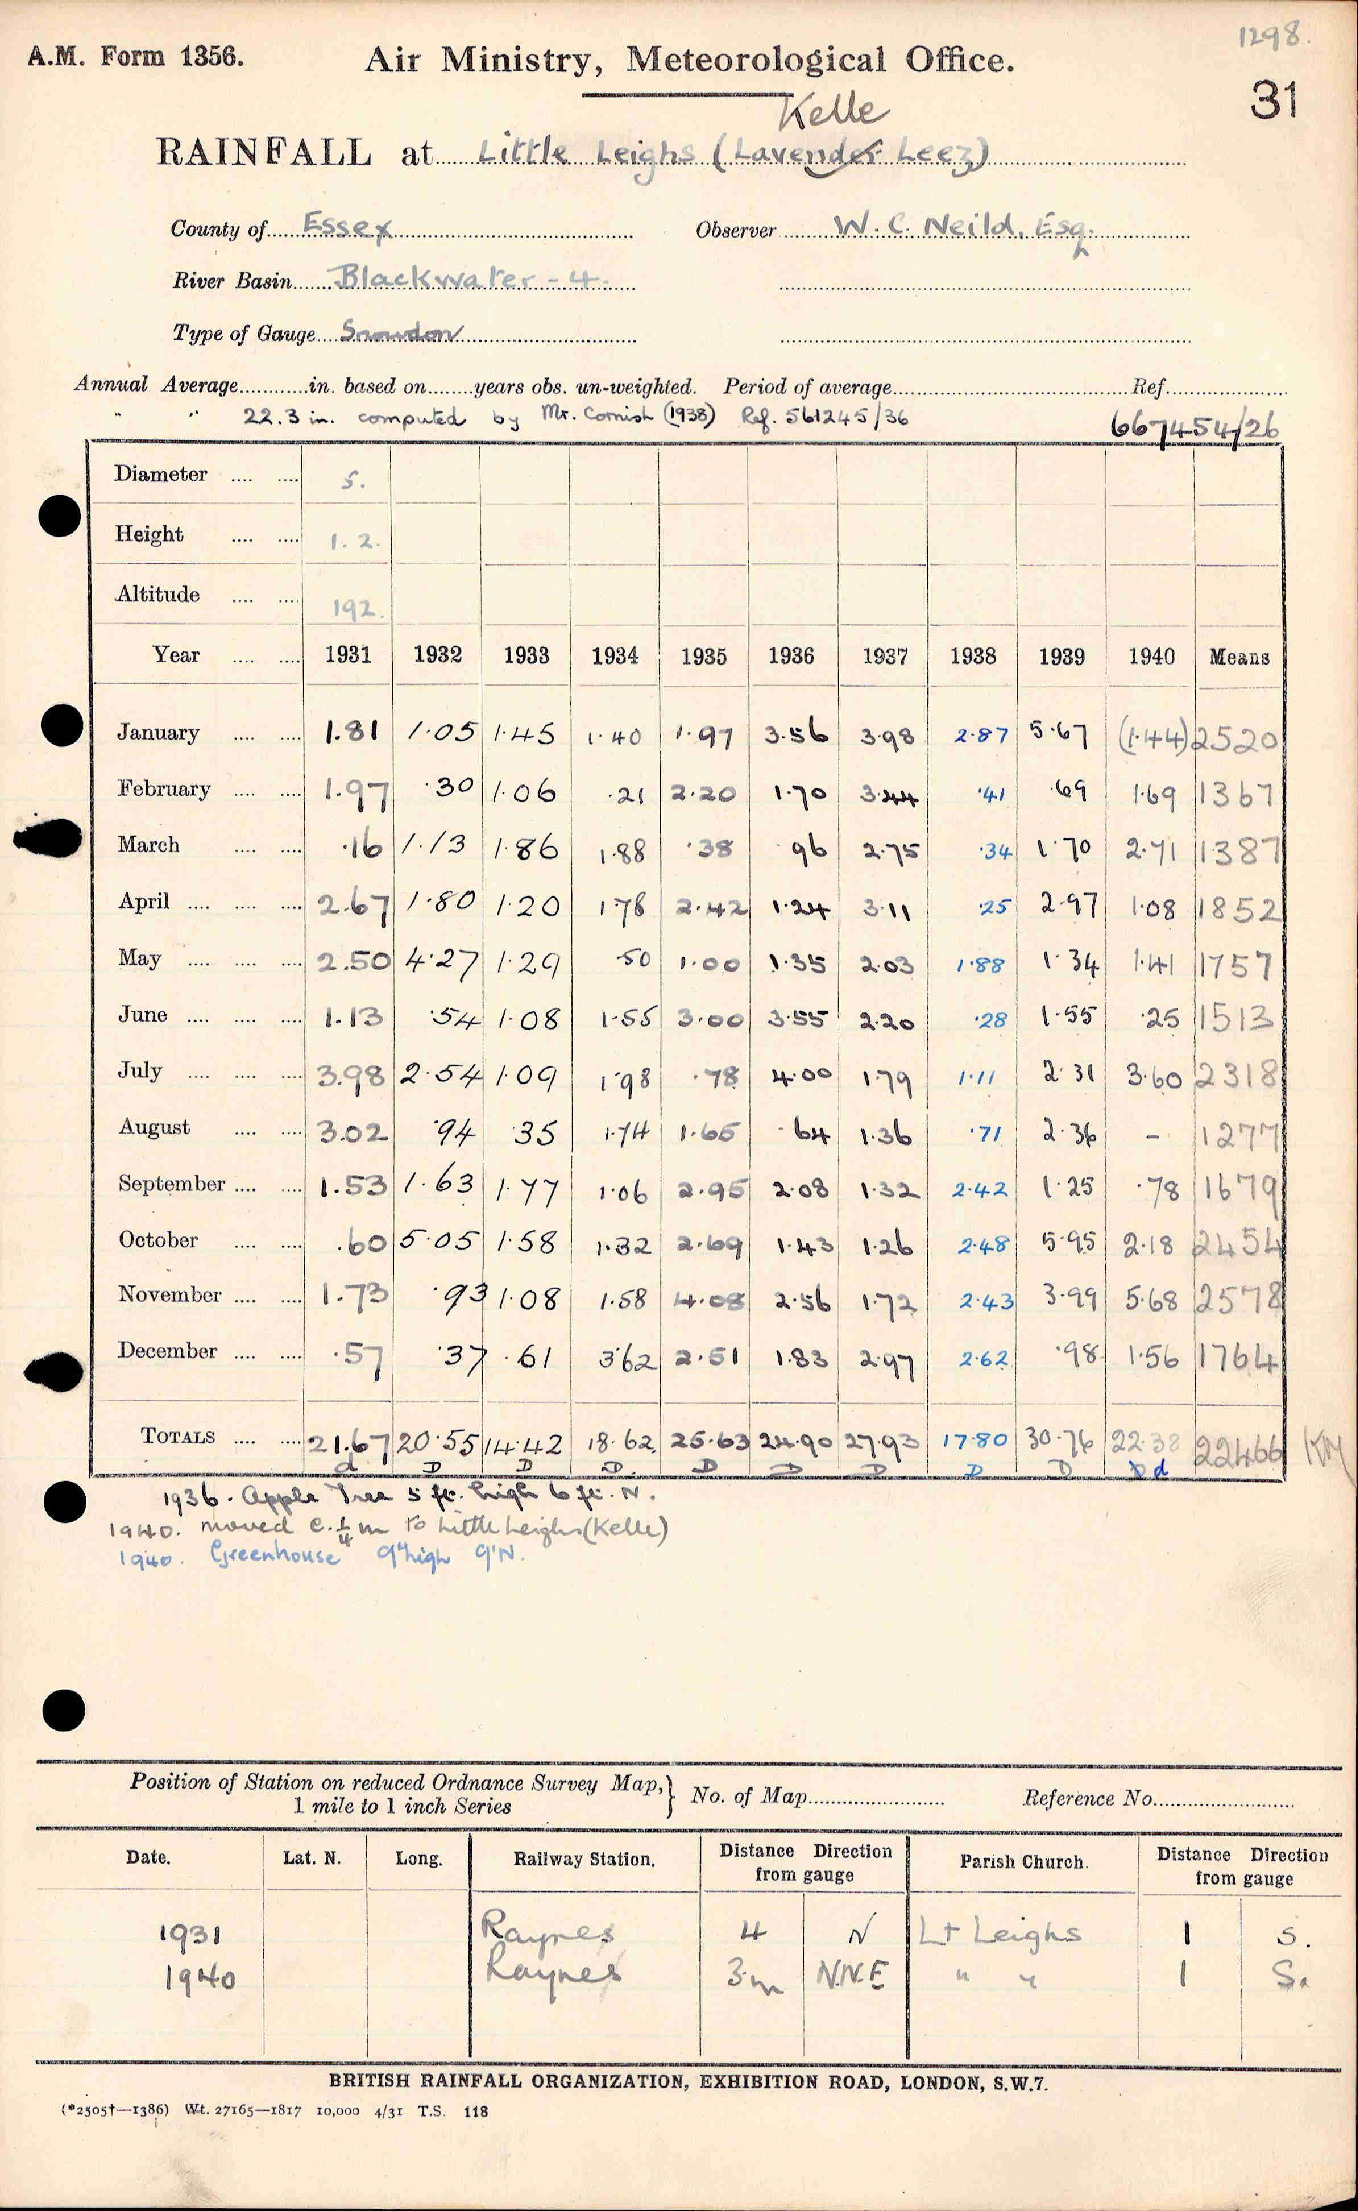 1298.
A.M. Form 1356. Air Ministry, Meteorological Office.
31
Kelle
RAINFALL at Little Leighs (Lavender Leez)
County of Essex Observer W. C. Neild, Esq.
River Basin Blackwater - 4.
Type of Gauge Snowdon
Annual Average in. based on years obs. un-weighted. Period of average Ref.
" " 22.3 in. computed by Mr. Cornish (1938) Ref. 561245/36 667454/26
Diameter 5.
Height 1. 2.
Altitude 192.
Year 1931 1932 1933 1934 1935 1936 1937 1938 1939 1940 Means
January 1.81 1.05 1.45 1.40 1.97 3.56 3.98 2.87 5.67 (1.44) 2520
February 1.97 .30 1.06 .21 2.20 1.70 3.44 .41 .69 1.69 1367
March .16 1.13 1.86 1.88 .38 96 2.75 .34 1.70 2.71 1387
April 2.67 1.80 1.20 1.78 2.42 1.24 3.11 .25 2.97 1.08 1852
May 2.50 4.27 1.29 .50 1.00 1.35 2.03 1.88 1.34 1.41 1757
June 1.13 .54 1.08 1.55 3.00 3.55 2.20 .28 1.55 .25 1513
July 3.98 2.54 1.09 1.98 .78 4.00 1.79 1.11 2.31 3.60 2318
August 3.02 .94 .35 1.74 1.65 .64 1.36 .71 2.36 - 1277
September 1.53 1.63 1.77 1.06 2.95 2.08 1.32 2.42 1.25 .78 1679
October .60 5.05 1.58 1.32 2.69 1.43 1.26 2.48 5.95 2.18 2454
November 1.73 .93 1.08 1.58 4.08 2.56 1.72 2.43 3.99 5.68 2578
December .57 .37 .61 3.62 2.51 1.83 2.97 2.62 .98 1.56 1764
TOTALS 21.67 20.55 14.42 18.62 25.63 24.90 27.93 17.80 30.76 22.38 22466 KM
d D D D. D D D D D D d
1936. Apple Tree 5 ft. high 6 ft. N.
1940. moved c. ¼ m to Little Leighs (Kelle)
1940. Greenhouse 9' high 9' N.
Position of Station on reduced Ordnance Survey Map, } No. of Map Reference No.
1 mile to 1 inch Series
Date. Lat. N. Long. Railway Station. Distance Direction from gauge Parish Church. Distance Direction from gauge
1931 Raynes 4 N Lt Leighs 1 S.
1940 Raynes 3m N.N.E " " 1 S.
BRITISH RAINFALL ORGANIZATION, EXHIBITION ROAD, LONDON, S.W.7.
(*2505†—1386) Wt. 27165—1817 10,000 4/31 T.S. 118